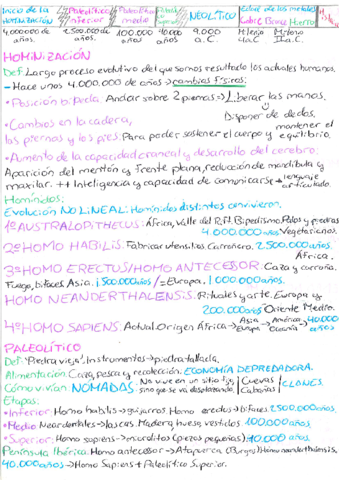 Inicio de la Hominización | Paleolítico inferior | Paleolítico medio | NEOLÍTICO | Edad de los metales
Cobre Bronce Hierro
4.000.000 de años. 2.500.000 de años. 100.000 años 40.000 años 9.000 a.C. M:lenio II a.C.
HOMINIZACIÓN
Def: Largo proceso evolutivo del que somos resultado los actuales humanos.
- Hace unos 4.000.000 de años → cambios físicos:
• Posición bípeda Andar sobre 2 piernas → Liberar las manos.
Disponer de dedos.
• Cambios en la cadera,
las piernas y los pies: Para poder sostener el cuerpo y mantener el equilibrio.
• Aumento de la capacidad craneal y desarrollo del cerebro:
Aparición del mentón y frente plana, reducción de mandíbula y
maxilar. ++ Inteligencia y capacidad de comunicarse → lenguaje articulado.
Homínidos:
Evolución NO LINEAL: Homínidos distintos convivieron.
1º AUSTRALOPITHECUS: África, Valle del Rift. Bipedismo. Palos y piedras
4.000.000 años Vegetarianos.
2º HOMO HABILIS: Fabricar utensilios. Carroñero. 2.500.000 años.
África.
3º HOMO ERECTUS/HOMO ANTECESSOR: Caza y carroña.
Fuego, bifaces. Asia. 1.500.000 años / = Europa. 1.000.000 años.
HOMO NEANDERTHALENSIS: Rituales y arte. Europa y
200.000 años Oriente Medio.
4º HOMO SAPIENS: Actual. Origen África → Asia Europa → América Oceanía 40.000 años
PALEOLÍTICO
Def: "Piedra vieja". Instrumentos → piedra tallada.
Alimentación: Caza, pesca y recolección. ECONOMÍA DEPREDADORA.
Cómo vivían: NÓMADAS: No vive en un sitio fijo, sino que se va desplazando | Cuevas Cabañas | CLANES
Etapas:
• Inferior: Homo habilis → guijarros. Homo erectus → bifaces 2.500.000 años.
• Medio: Neandertales → lascas. Madera, hueso, vestidos 100.000 años.
• Superior: Homo sapiens → microlitos (piezas pequeñas) 40.000 años.
Península Ibérica. Homo antecessor → Atapuerca (Burgos) Homo neanderthalensis,
40.000 años → Homo Sapiens + Paleolítico Superior.